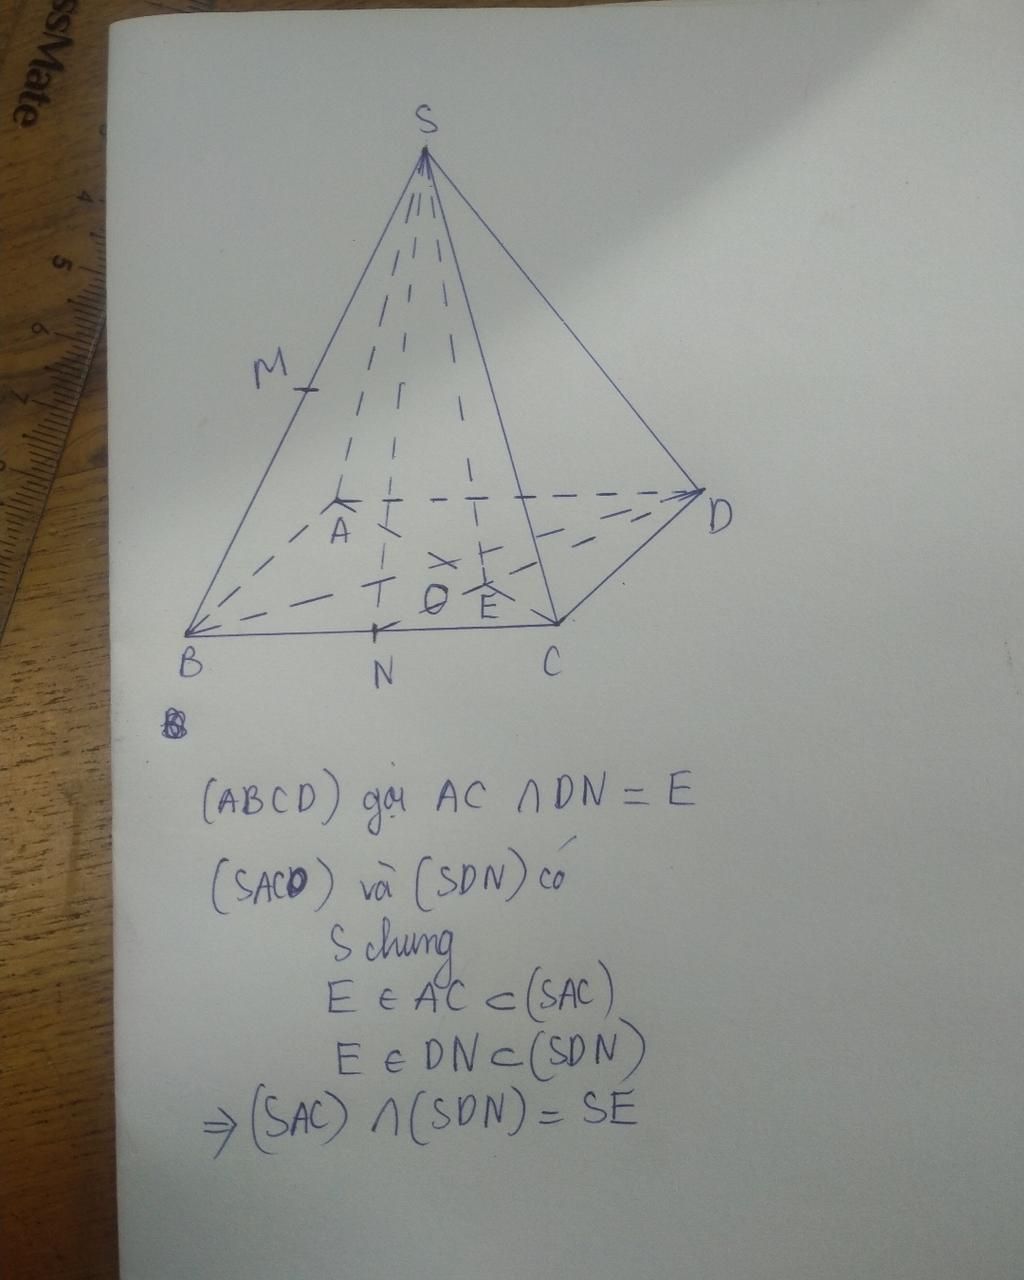 ssMate
3
4
5
6
7
S
M
A
D
O
E
B
N
C
(ABCD) gọi AC ∩ DN = E
(SAC) và (SDN) có
S chung
E ∈ AC ⊂ (SAC)
E ∈ DN ⊂ (SDN)
⇒ (SAC) ∩ (SDN) = SE